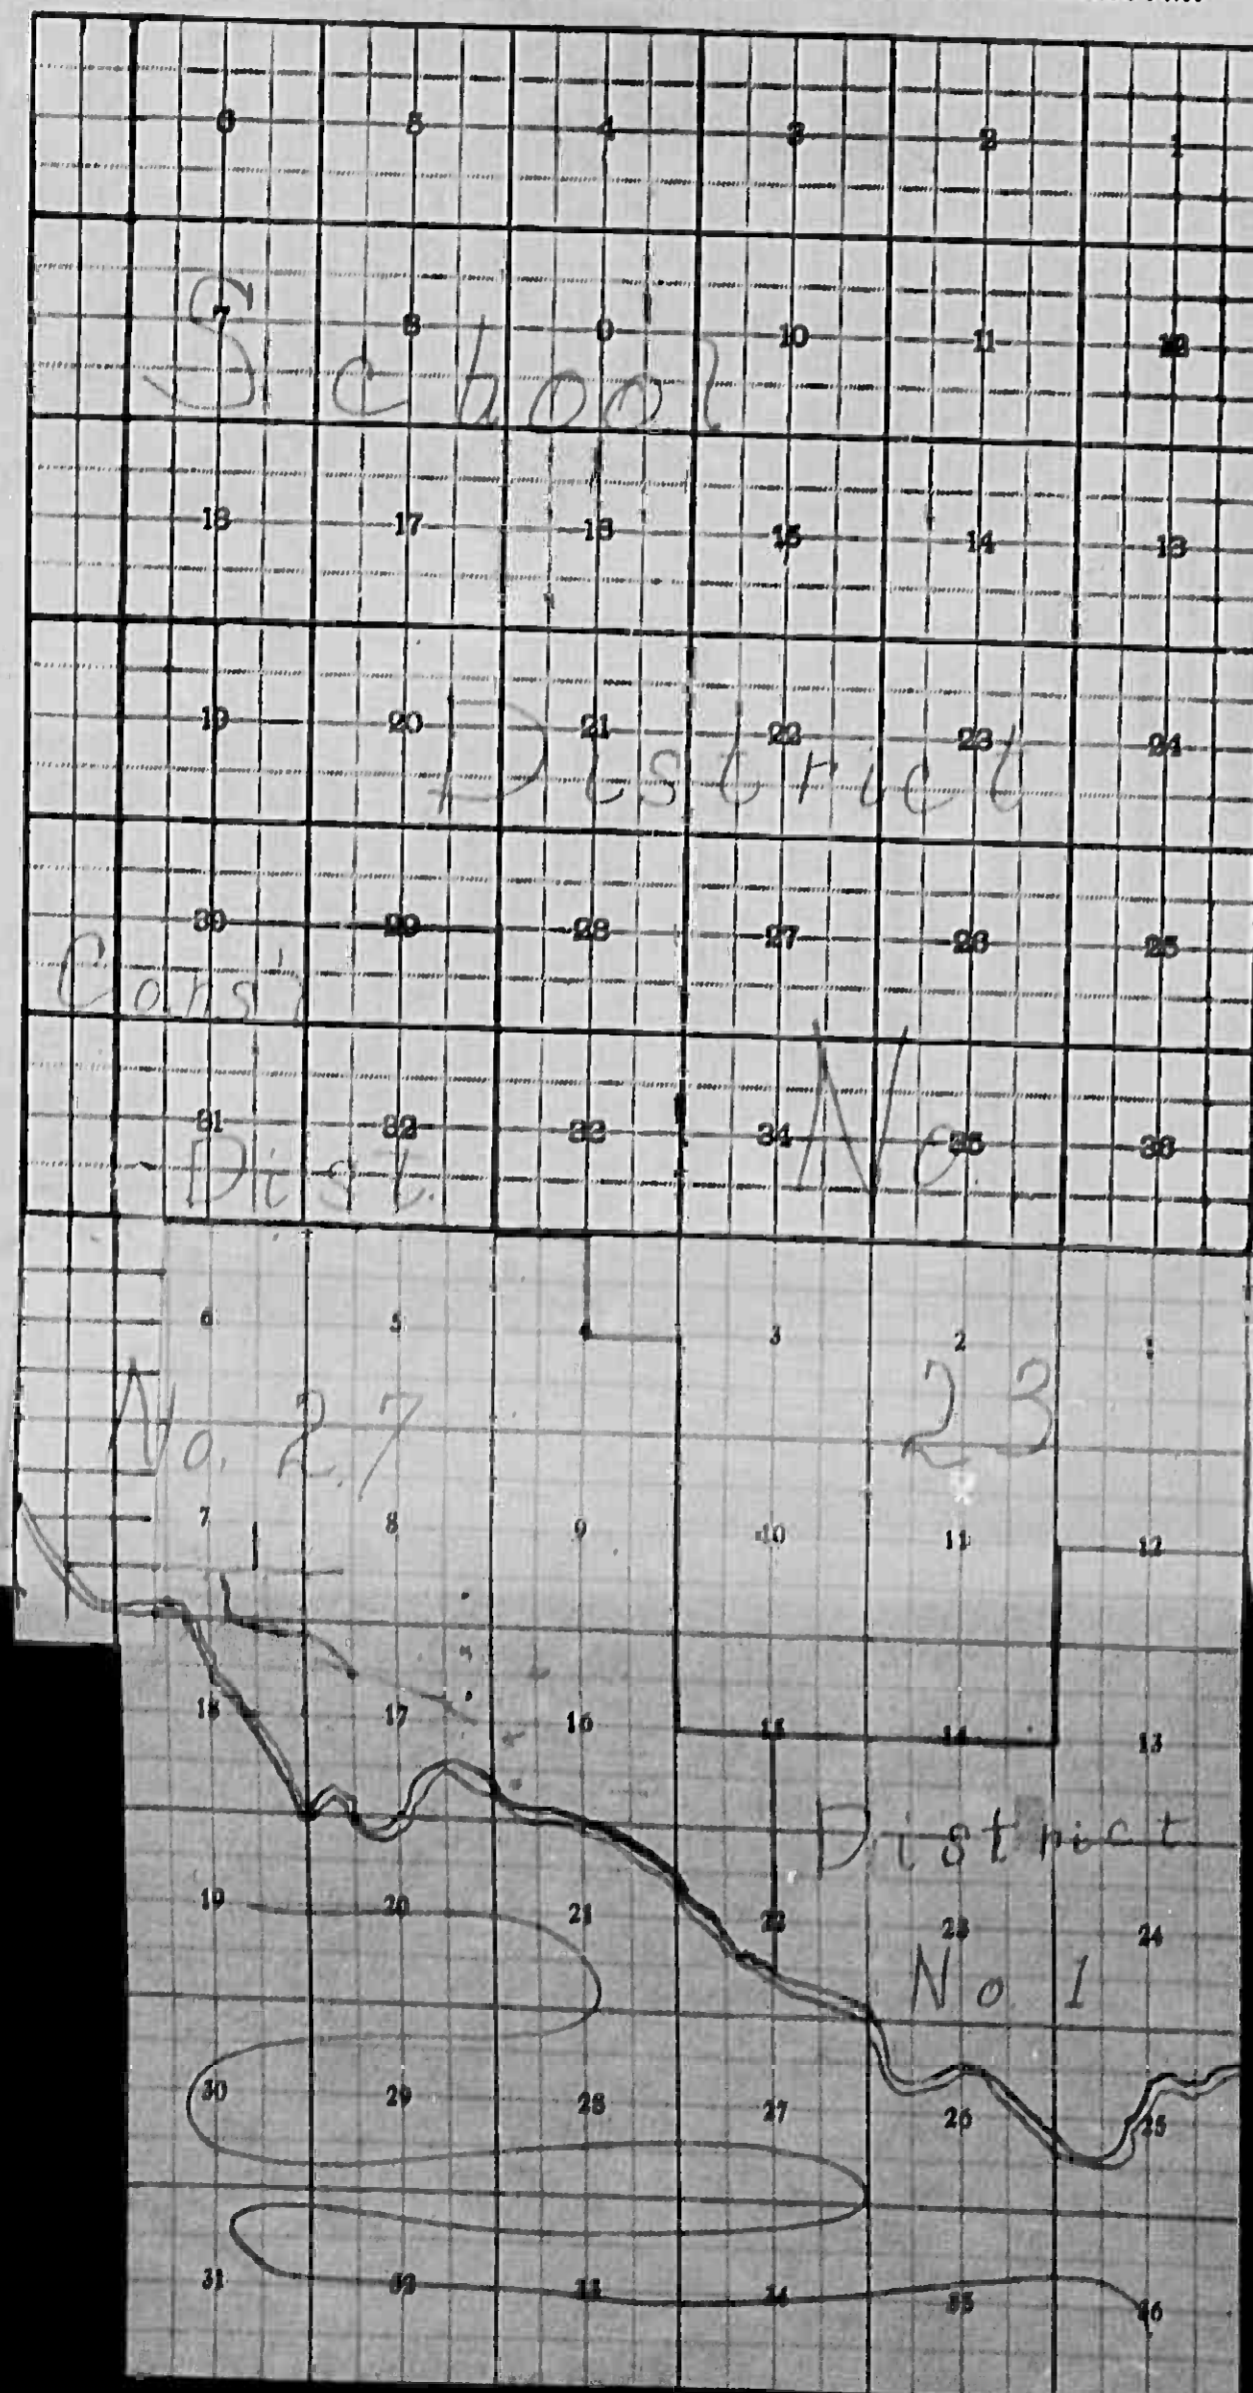 6 5 4 3 2 1
7 8 9 10 11 12
School
18 17 16 15 14 13
19 20 21 22 23 24
District
30 29 28 27 26 25
Cons'l
31 32 33 34 35 36
Dist. No.
6 5 3 2 1
No. 27 23
7 8 9 10 11 12
18 17 16 15 14 13
District
19 20 21 22 23 24
No. 1
30 29 28 27 26 25
31 32 33 34 35 36